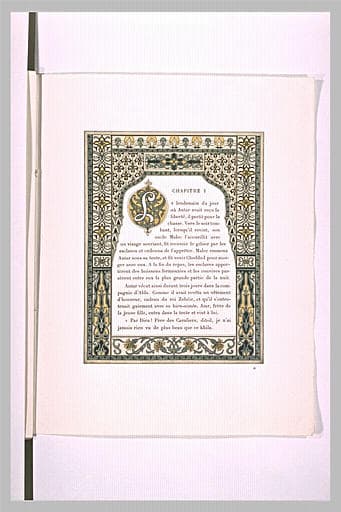 CHAPITRE I
Le lendemain du jour
où Antar avait reçu la
liberté, il partit pour la
chasse. Vers le soir tom-
bant, lorsqu'il revint, son
oncle Malec l'accueillit avec
un visage souriant, fit revenir le gibier par les
esclaves et ordonna de l'apprêter. Malec emmena
Antar sous sa tente, et fit venir Cheddad pour man-
ger avec eux. A la fin du repas, les esclaves appor-
tèrent des boissons fermentées et les convives pas-
sèrent entre eux la plus grande partie de la nuit
Antar vécut ainsi durant trois jours dans la com-
pagnie d'Abla. Comme il avait revêtu un vêtement
d'honneur, cadeau du roi Zoheïr, et qu'il s'entre-
tenait gaiement avec sa bien-aimée, Amr, frère de
la jeune fille, entra dans la tente et vint à lui.
« Par Dieu! Père des Cavaliers, dit-il, je n'ai
jamais rien vu de plus beau que ce khila.